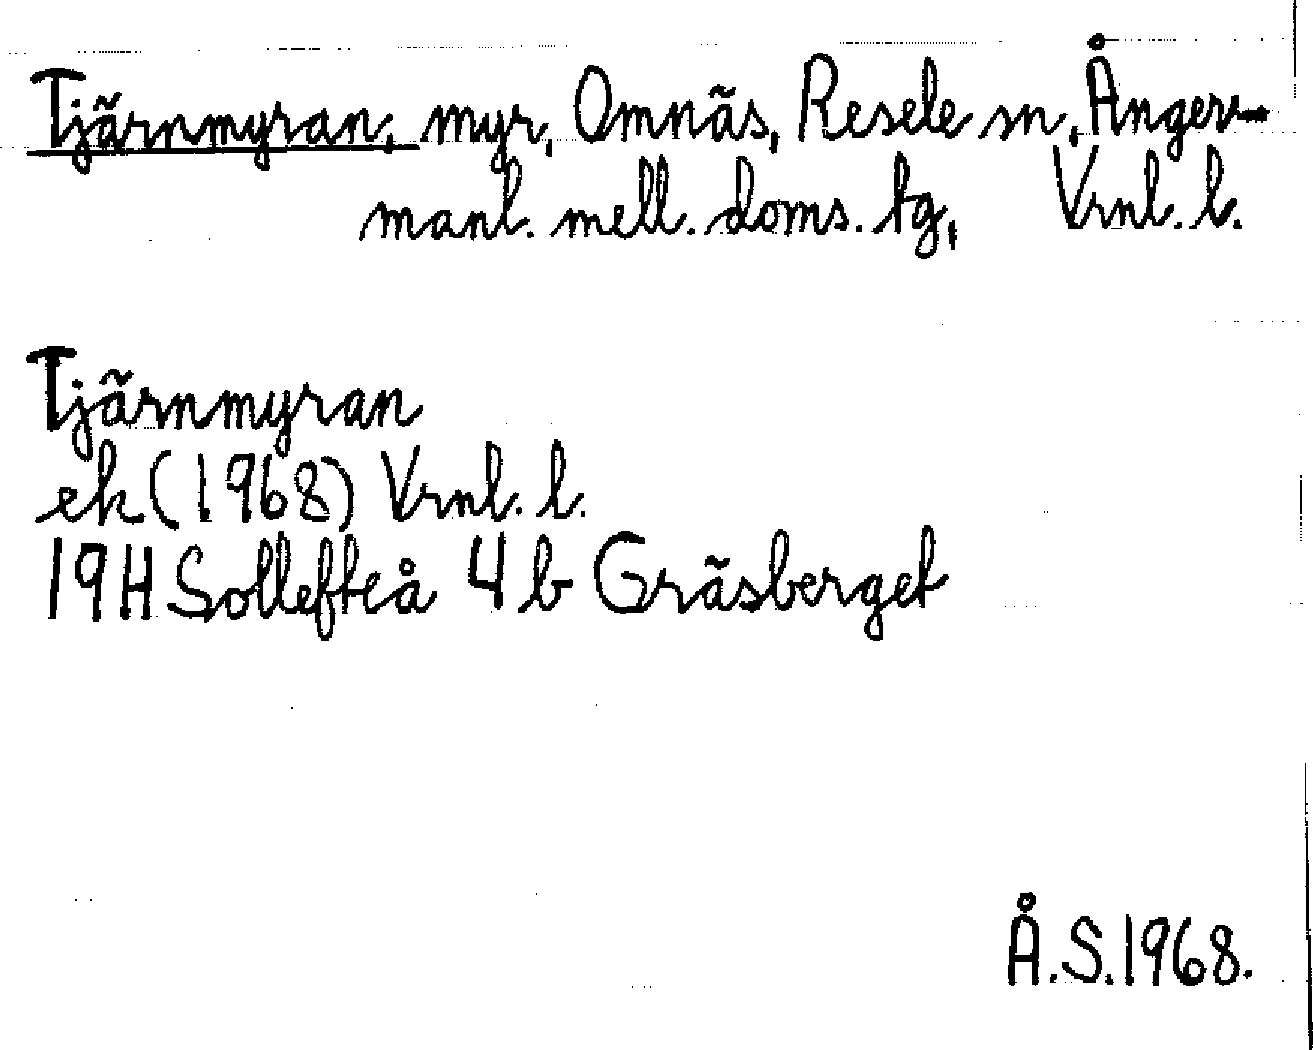 Tjärnmyran, myr, Omnäs, Resele sn, Ånger-
manl. mell. doms. tg, Vrnl. l.
Tjärnmyran
ek (1968) Vrnl. l.
19H Sollefteå 4 b Gräsberget
Å.S.1968.